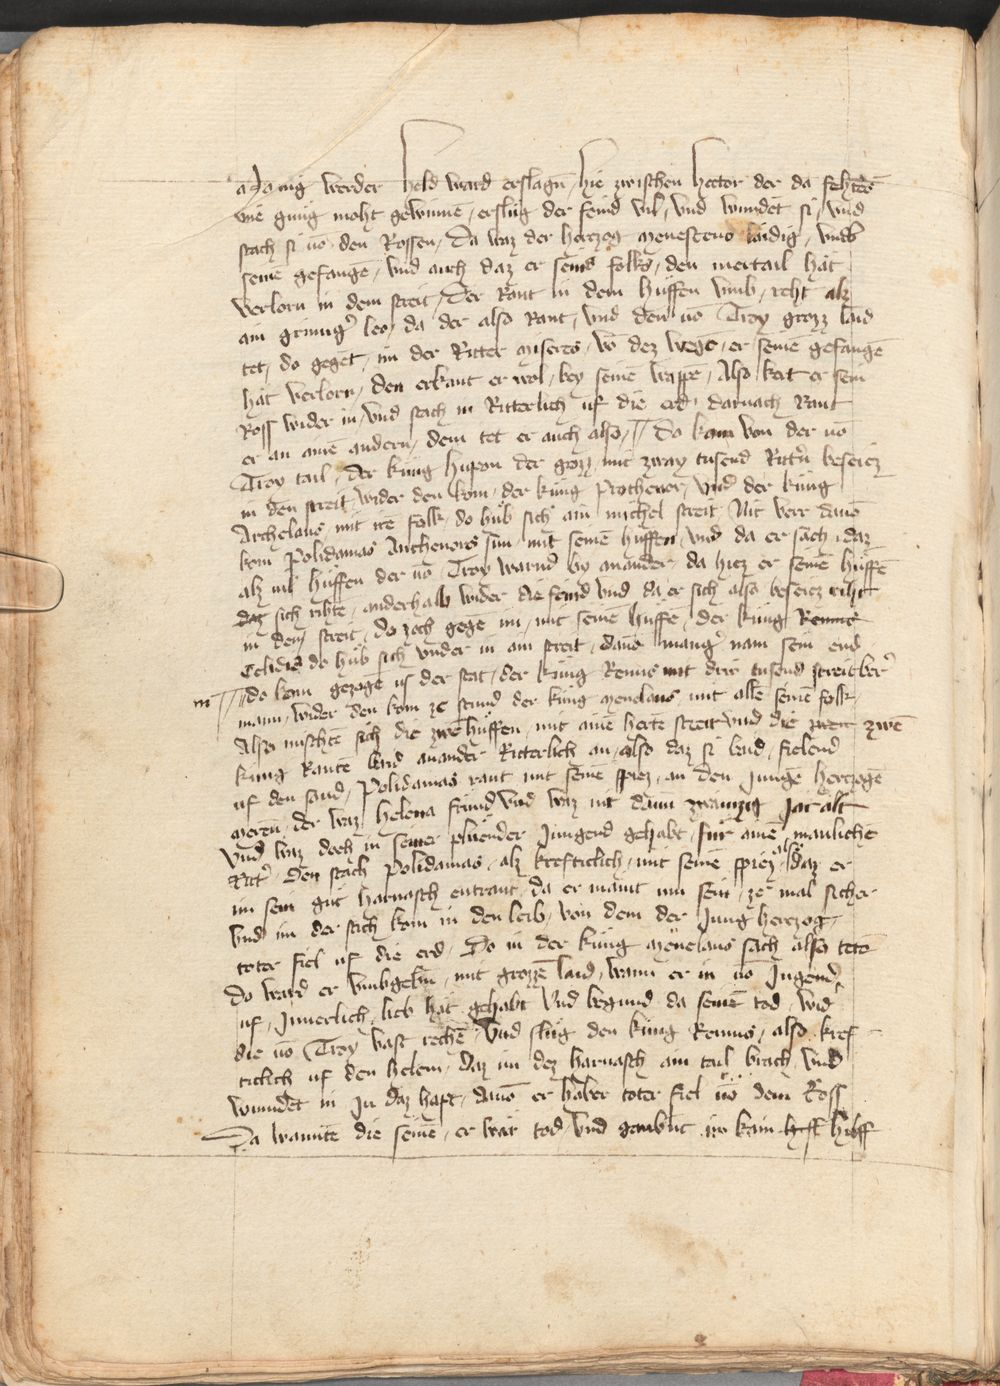 Manig werder held ward erslagn̄ / hie zwischen Hector der da fehtēs
nie gnüg moht gewinnē / erslüg der feind vil / vnd wundet si / vnd
stach si vō den Rossen / Da waz der herczog menesteus laidig / vmb
seinē gefangē / vnd auch daz er seins folks / den mertail hät
verlorn in dem streit / Der Rant in dem huffen vmb / reht alz
ain grimig' leo / da der also Rant / vnd den vō Troy grozz laid
tet / do gegēt / im der Ritter miseres / vō dez wegē / er seinē gefangē
hät verlorn / den erkant er wol / bey seinē wappē / Also kert er sein
Ross wider in / vnd stach in Ritterlich uf die erd / darnach Rant
er an ainē andern / dem tet er auch alsō / Do kam von der vō
Troy tail / der küng hupon der grozz / mit zway tusend Rittn̄ besetcz
in den streit / wider den kom / der küng Prothenor / vnd der küng
Archelaus / mit irē folk / do hüb sich ain michel streit Nit verr dauō
kom Polidamas Anthenores sun / mit seinē huffen / vnd da er sach / daz
alz vil huffen der vō Troy warnd by anander / da hiez er seinē huffē
daz sich rihtē / anderhalb wider die feind vnd da er sich also besetcz riht
in den streit / do zoch gegē im / mit seinē huffē / der küng Remus
Celidis do hüb sich vnder in ain streit / dauō mang' nam sein end
do kom gezogē us der stat / der küng Remus mit drü tusend streitber'
mann / wider den kom ze stund der küng menelaus / mit allē seinē folk /
Also mischtē sich die zwē huffen / mit ainē hertē streit vnd die zwen zwē
küng Rantē baid anander Ritterlich an / also daz si baid / fielend
uf den sand / Polidamas rant mit seinē spiez / an den jungē herczogē
merēn / der waz / Helena fründ / vnd waz nit dann zwainzig jar alt
vnd waz doch in seiner plüender Jungend gehabt / für ainē manlichē
Ritt' / den stach Polidamas / alz krefticlich / mit seinē spiez / also daz er
im sein güt harnasch entrant / da er maint inn sein / ze mal sicher
vnd im der stich kom in den leib / von dem der Jung herczog /
toter fiel uf die erd / Do in der küng menelaus sach alsō totē
do ward er vmbgebn̄ / mit grozzē laid / wann er in vō Jugend'
uf / Jnnerlich / lieb hät gehabt vnd begund da seinē tod / wid'
die vō Troy vast rechē / vnd slüg den küng Remus / also kref
ticlich uf den helem / daz im dez harnasch ain tail brach / vnd
wundet in Jn daz hapt / dauō er halber toter fiel vō dem Ross
Da wantē die seinē / er wär tod / vnd gaubnt im kain hilff